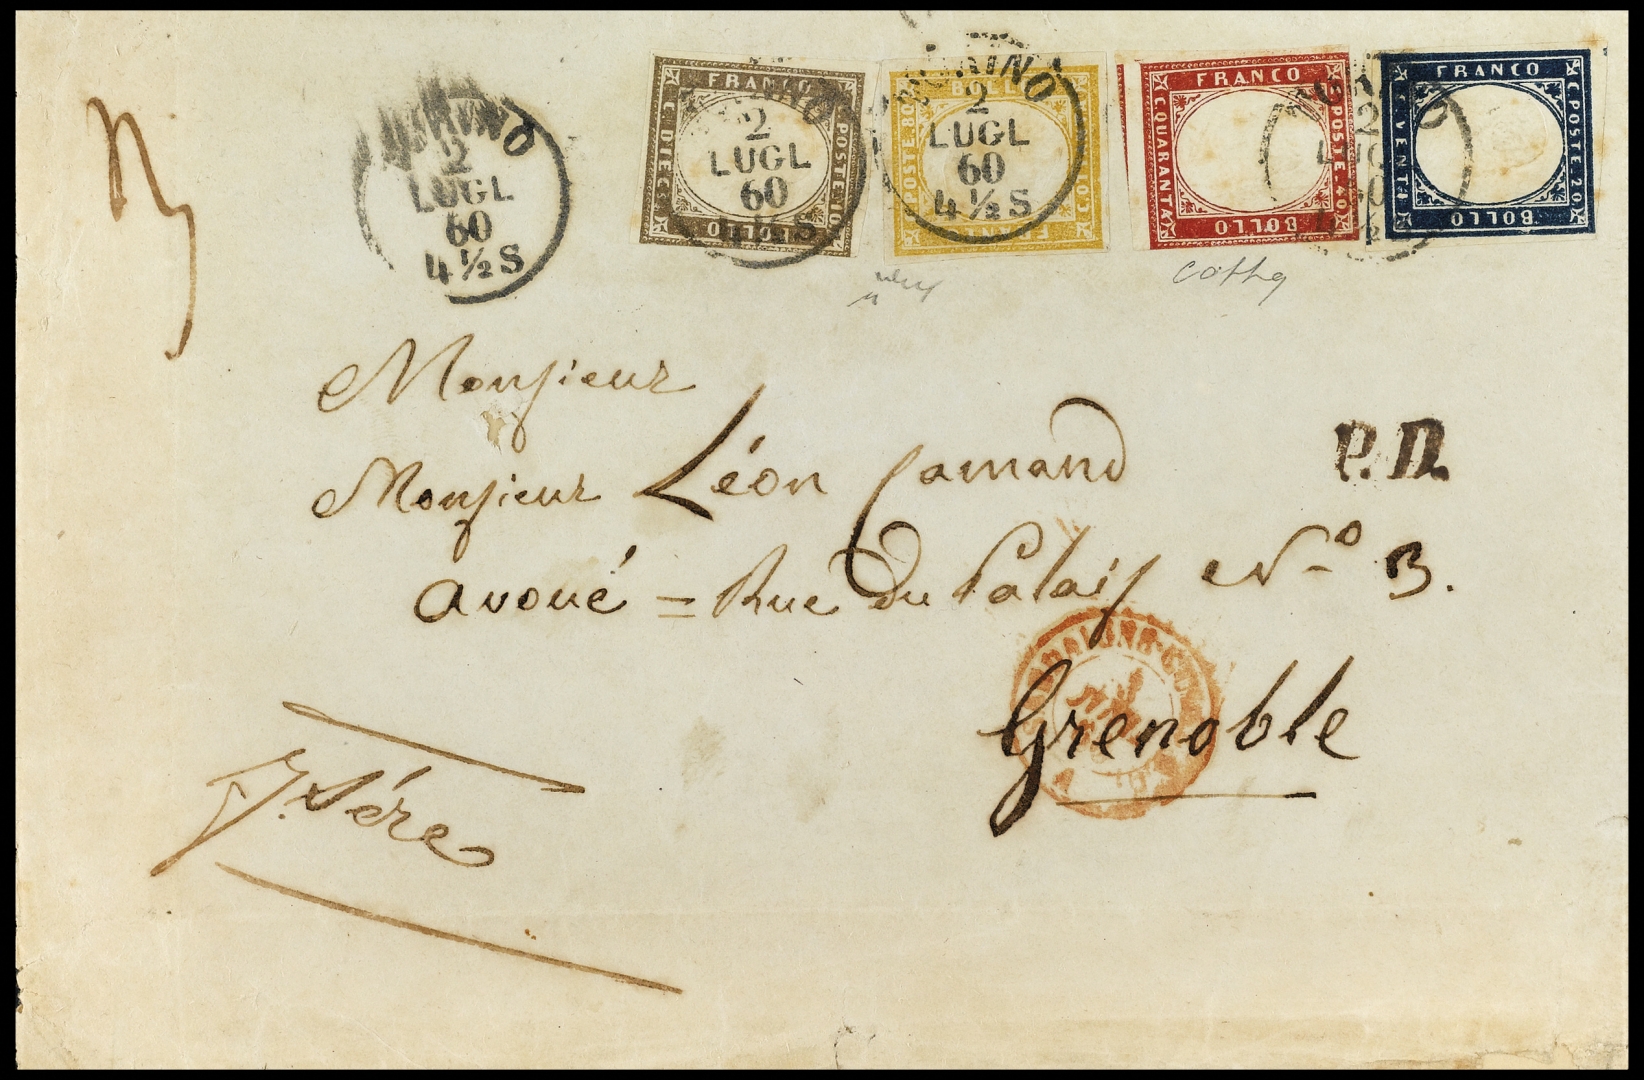 TORINO
2
LUGL
60
4½S
FRANCO
C. DIECI
POSTE 10
BOLLO
2
LUGL
60
4½S
BOLLO
POSTE
FRANCO
TORINO
2
LUGL
60
4½S
FRANCO
C. QUARANTA
C. POSTE 40
BOLLO
FRANCO
C. VENTI
C. POSTE 20
BOLLO
Monsieur
Monsieur Léon Camand
P.D.
avoué = Rue du Palais No 3.
Grenoble
Isére